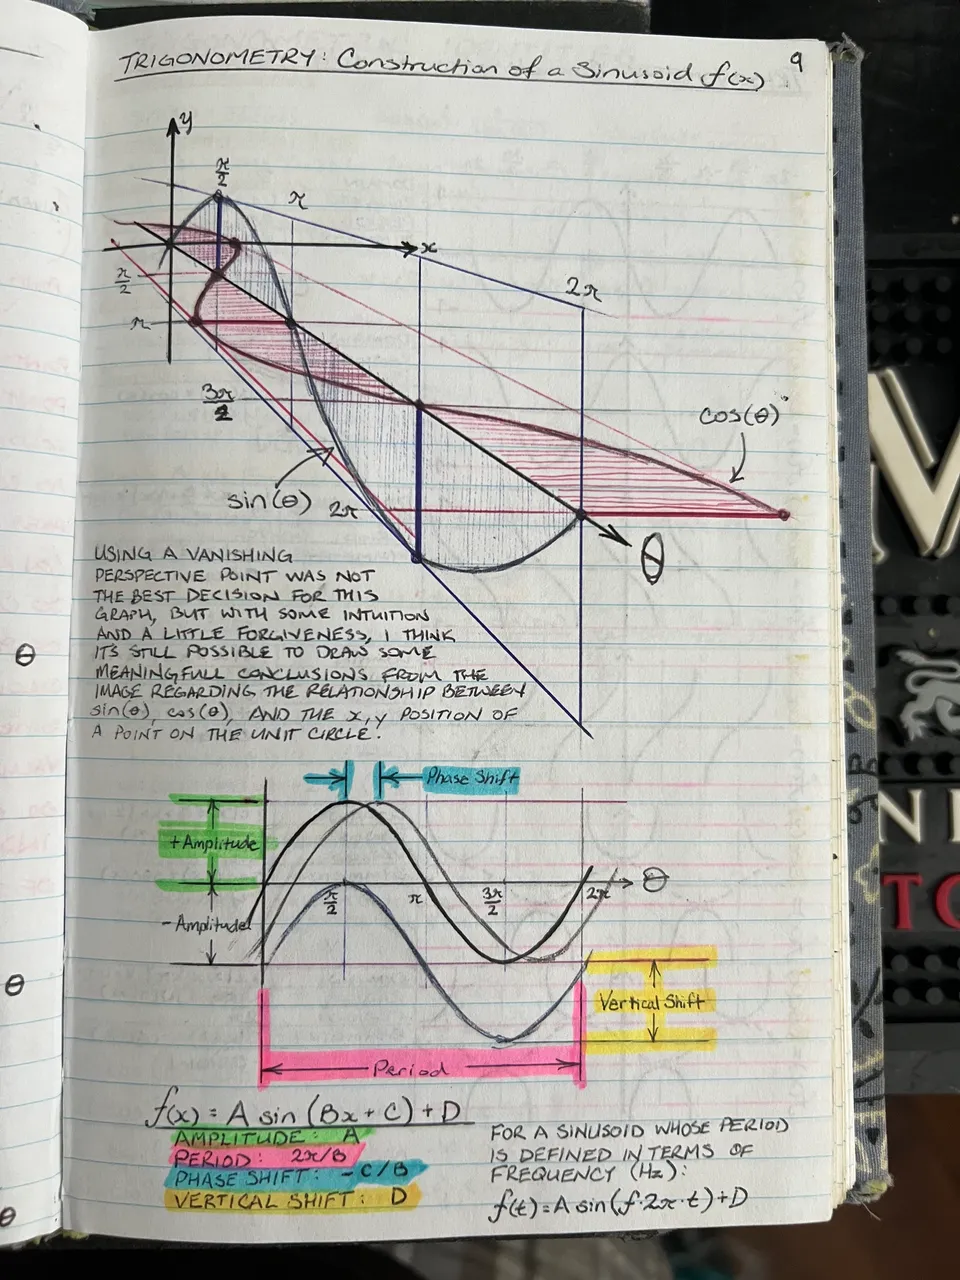 TRIGONOMETRY: Construction of a Sinusoid f(x)
9
y
π/2
π
x
π/2
2π
π
3π/2
cos(θ)
sin(θ)
2π
θ
USING A VANISHING
PERSPECTIVE POINT WAS NOT
THE BEST DECISION FOR THIS
GRAPH, BUT WITH SOME INTUITION
AND A LITTLE FORGIVENESS, I THINK
IT'S STILL POSSIBLE TO DRAW SOME
MEANINGFULL CONCLUSIONS FROM THE
IMAGE REGARDING THE RELATIONSHIP BETWEEN
sin(θ), cos(θ), AND THE x,y POSITION OF
A POINT ON THE UNIT CIRCLE.
θ
θ
θ
Phase Shift
+ Amplitude
θ
π/2
π
3π/2
2π
- Amplitude
Vertical Shift
Period
f(x) = A sin (Bx + C) + D
AMPLITUDE: A
PERIOD: 2π/B
PHASE SHIFT: -C/B
VERTICAL SHIFT: D
FOR A SINUSOID WHOSE PERIOD
IS DEFINED IN TERMS OF
FREQUENCY (Hz):
f(t) = A sin(f·2π·t)+D